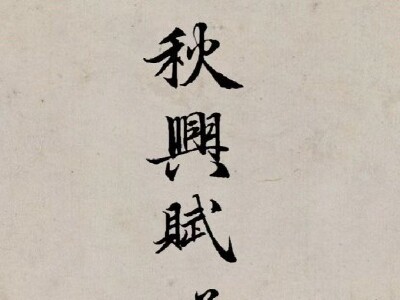 秋興賦